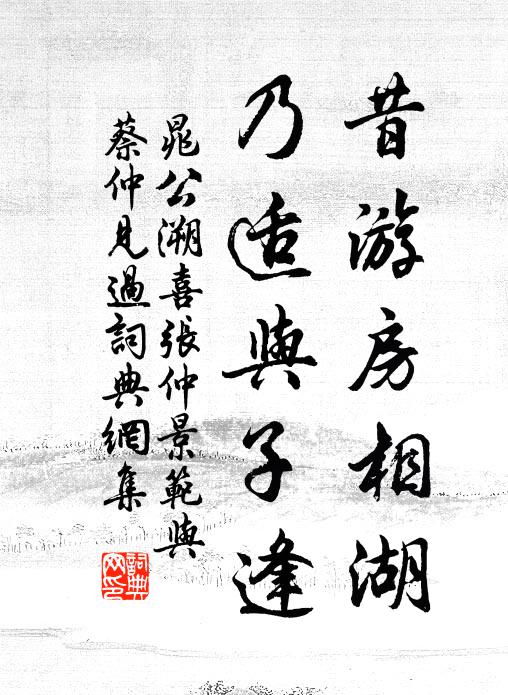 昔游房相湖
乃适與子逢
晁公溯喜張仲景範與
蔡仲見過詞典網集
詞典
网印